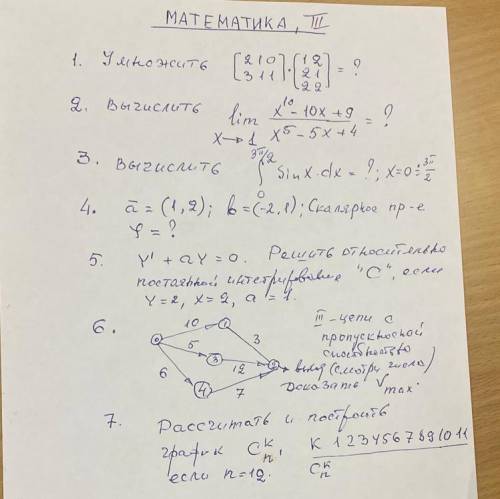 МАТЕМАТИКА, III
1. Умножить [2 1 0 / 3 1 1] · [1 2 / 2 1 / 2 2] = ?
2. Вычислить lim x→1 (x¹⁰ - 10x + 9)/(x⁵ - 5x + 4) = ?
3. Вычислить ∫₀^(3π/2) Sinx·dx = ?; x=0÷3π/2
4. ā = (1,2); b̄ = (-2,1); Скалярное пр-е
φ = ?
5. Y' + aY = 0. Решить относительно
постоянной интегрирования "С", если
Y=2, x=2, a=1.
6. III-цепи с
пропускной
способностью
(смотри числа)
Доказать Vmax.
0 10 1 3
5 3 12
6 4 7
7. Рассчитать и построить
график Cₙᵏ, К 1 2 3 4 5 6 7 8 9 10 11
если n=12. Cₙᵏ